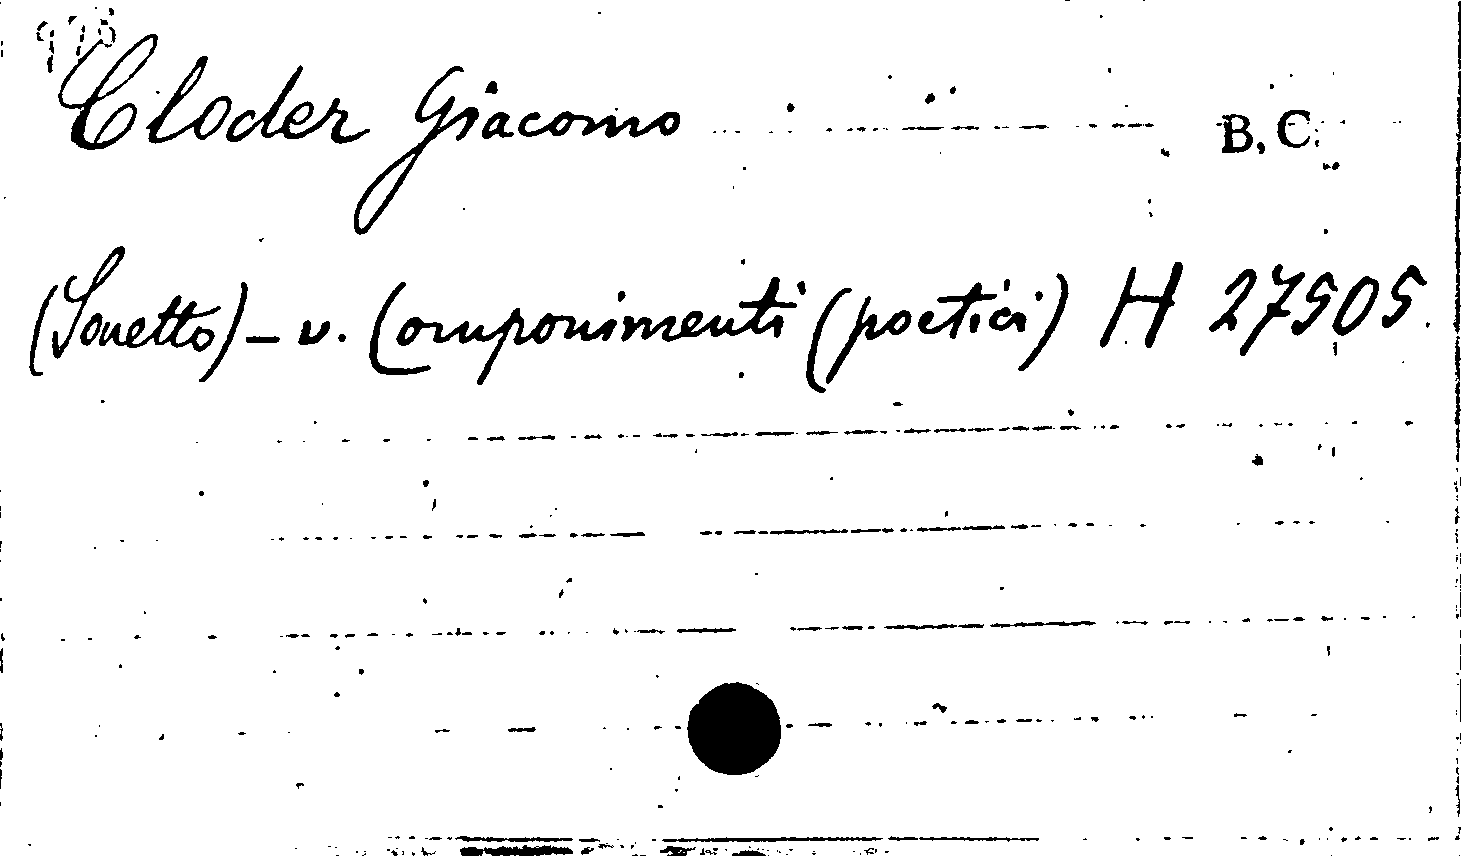 Cloder Giacomo B. C.
(Sonetto) - v. Componimenti (poetici) H 27505